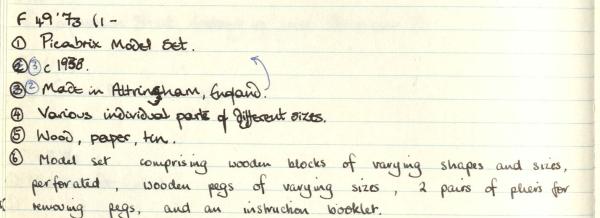 F 49'73 (1-
① Picabrix Model Set.
③ c 1938.
② Made in Altringham, England.
④ Various individual parts of different sizes.
⑤ Wood, paper, tin.
⑥ Model set comprising wooden blocks of varying shapes and sizes,
perforated, wooden pegs of varying sizes, 2 pairs of pliers for
removing pegs, and an instruction booklet.